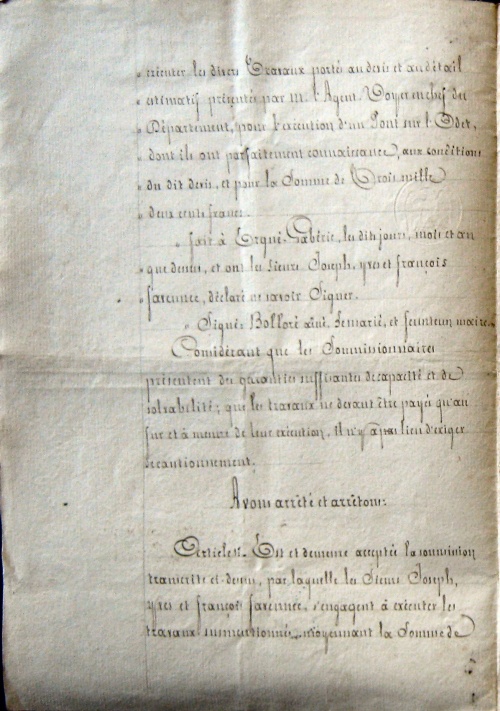 " exécuter les divers Travaux portés au devis et au détail
" estimatif présentés par Mr. l'Agent-Voyer en chef du
" Département, pour l'exécution d'un Pont sur l'Odet,
" dont ils ont parfaitement connaissance, aux conditions
" du dit devis, et pour la Somme de Trois mille
" deux cents francs.
" fait à Ergué-Gabéric, les dits jours, mois et an
" que dessus, et ont les Sieurs Joseph, yves et françois
" favennec, déclaré ne savoir Signer.
" Signé: Bolloré aîné, Lemarié, et feunteun maire.
Considérant que les Soumissionnaires
présentent des garanties suffisantes de capacité et de
solvabilité; que les travaux ne devant être payés qu'au
fur et à mesure de leur exécution, il n'y a pas lieu d'exiger
de cautionnement.
Avons arrêté et arrêtons:
Article 1er. Est et demeure acceptée la soumission
transcrite ci-dessus, par laquelle les Sieurs Joseph,
yves et françois favennec, s'engagent à exécuter les
travaux susmentionnés, moyennant la Somme de